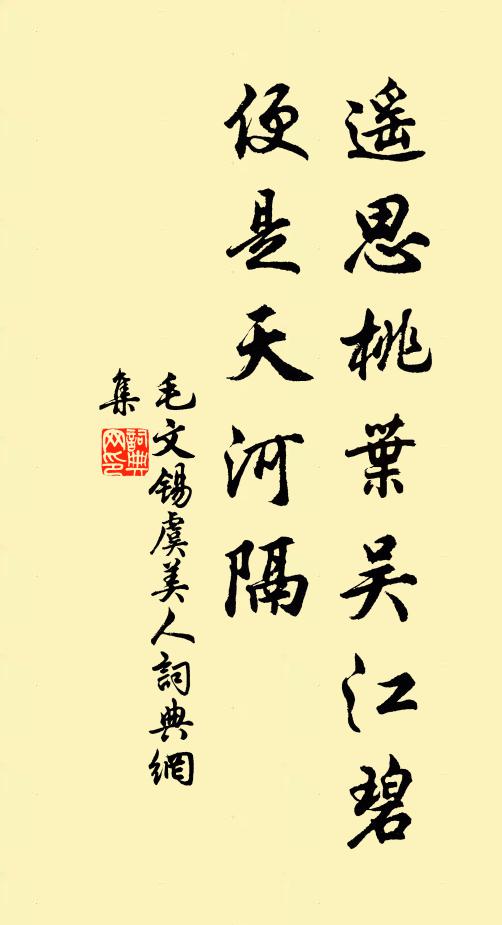 遥思桃葉吴江碧
便是天河隔
毛文锡虞美人詞典網
集
詞典网印